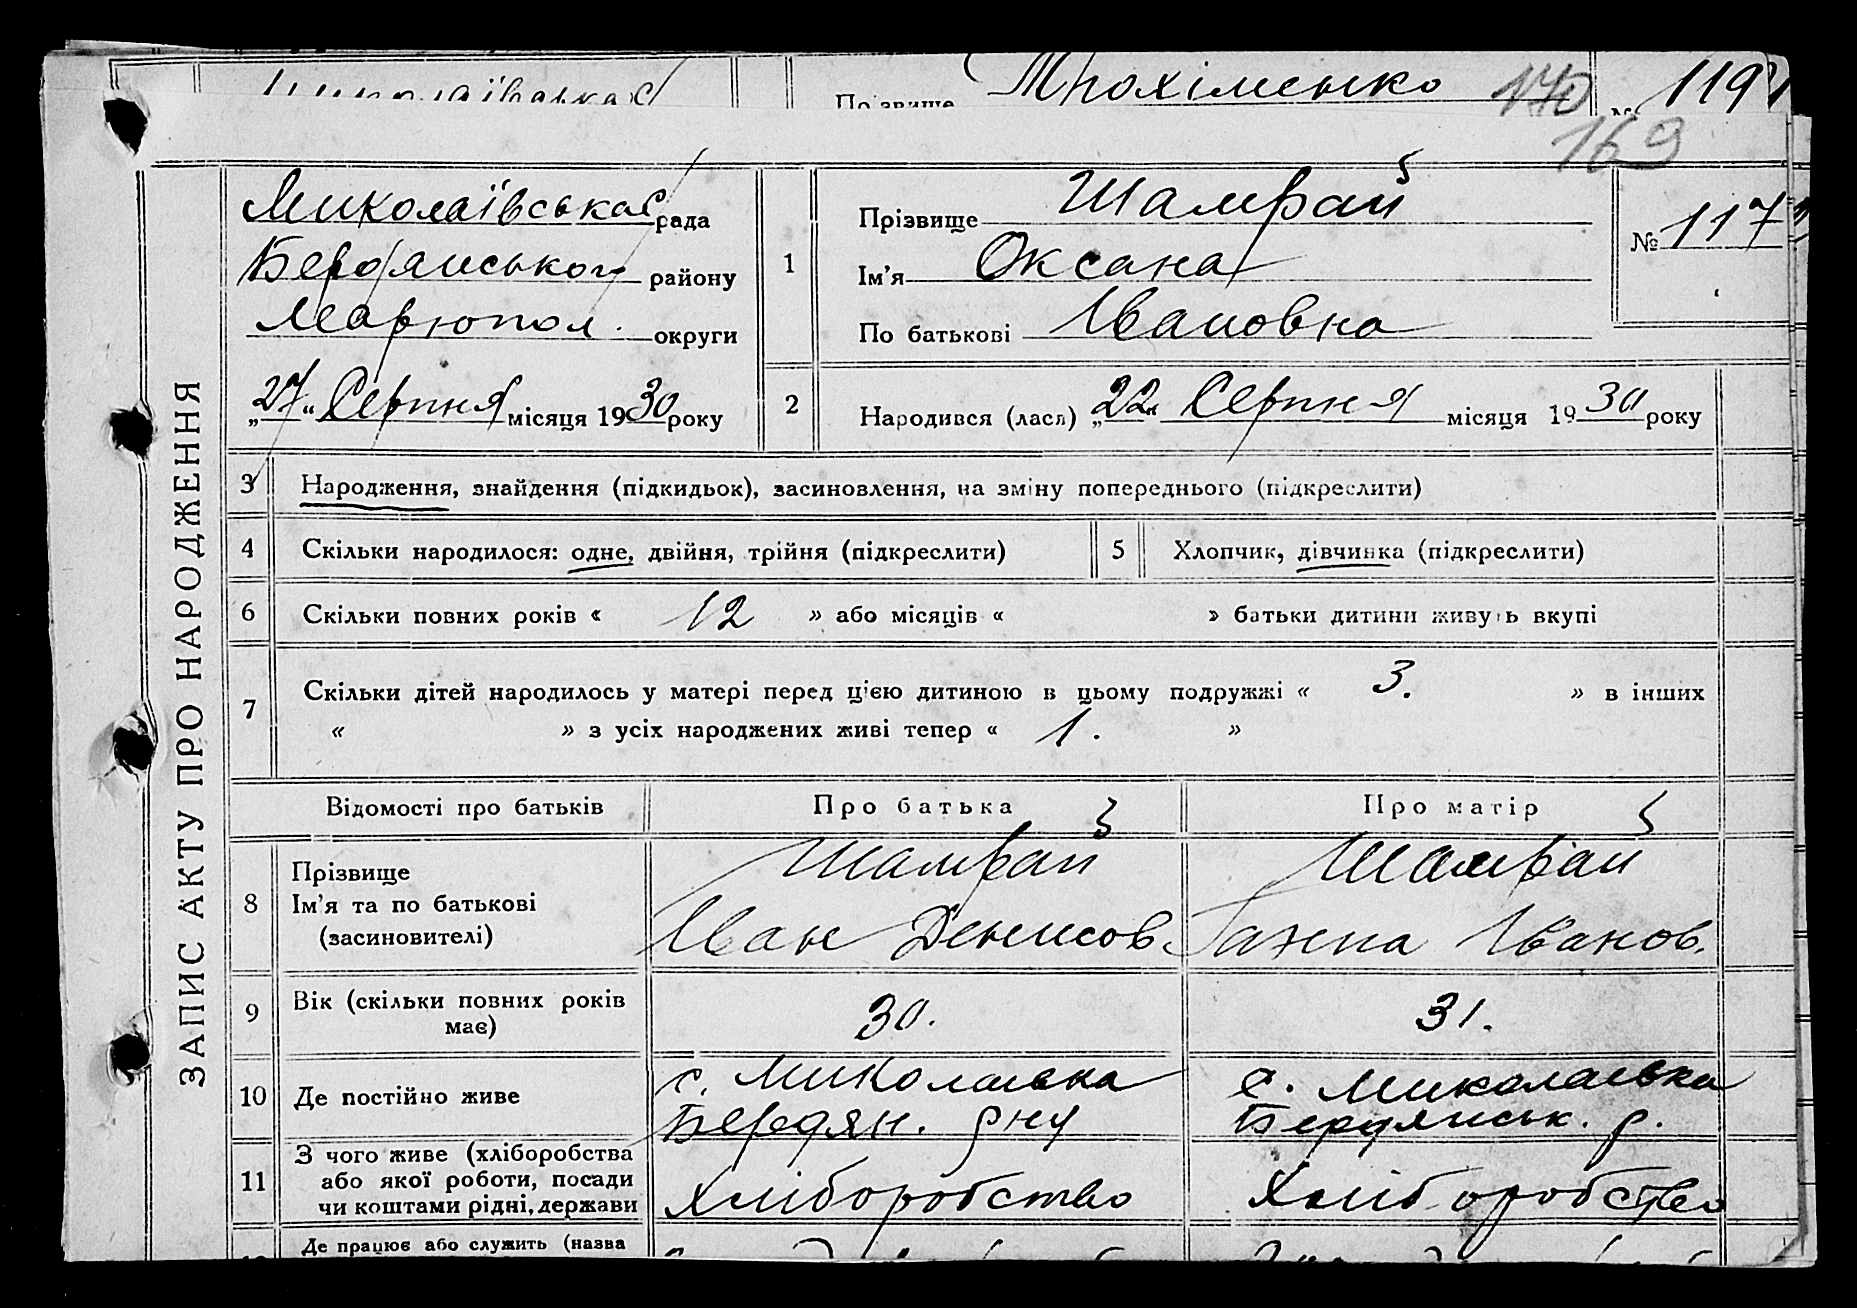 Прізвище Трохіменко 170 № 119
169
ЗАПИС АКТУ ПРО НАРОДЖЕННЯ
Миколаївська с/рада
Бердянського району
Маріюпол. округи
„27" Серпня місяця 1930 року
1
Прізвище Шамрай
Ім'я Оксана
По батькові Івановна
№ 117
2 Народився (лася) „22" Серпня місяця 1930 року
3 Народження, знайдення (підкидьок), засиновлення, на зміну попереднього (підкреслити)
4 Скільки народилося: одне, двійня, трійня (підкреслити) 5 Хлопчик, дівчинка (підкреслити)
6 Скільки повних років « 12 » або місяців « » батьки дитини живуть вкупі
7 Скільки дітей народилось у матері перед цією дитиною в цьому подружжі « 3. » в інших
« » з усіх народжених живі тепер « 1. »
Відомості про батьків Про батька Про матір
8 Прізвище Шамрай Шамрай
Ім'я та по батькові Іван Денисов. Ганна Іванов.
(засиновителі)
9 Вік (скільки повних років має) 30. 31.
10 Де постійно живе с. Миколаївка с. Миколаївка
Бердян. рну Бердянськ. р.
11 З чого живе (хліборобства
або якої роботи, посади
чи коштами рідні, держави Хліборобство Хліборобство
Де працює або служить (назва